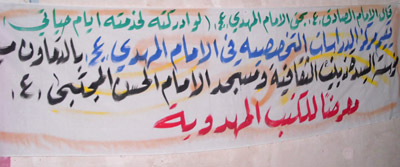 قال الإمام الصادق (ع) بحق الإمام المهدي (ع) (لو أدركته لخدمته أيام حياتي)
يقيم مركز الدراسات التخصصية في الامام المهدي (ع) بالتعاون مع
مؤسسة السيدة زينب الثقافية ومسجد الامام الحسن المجتبى (ع)
معرضنا للكتب المهدوية